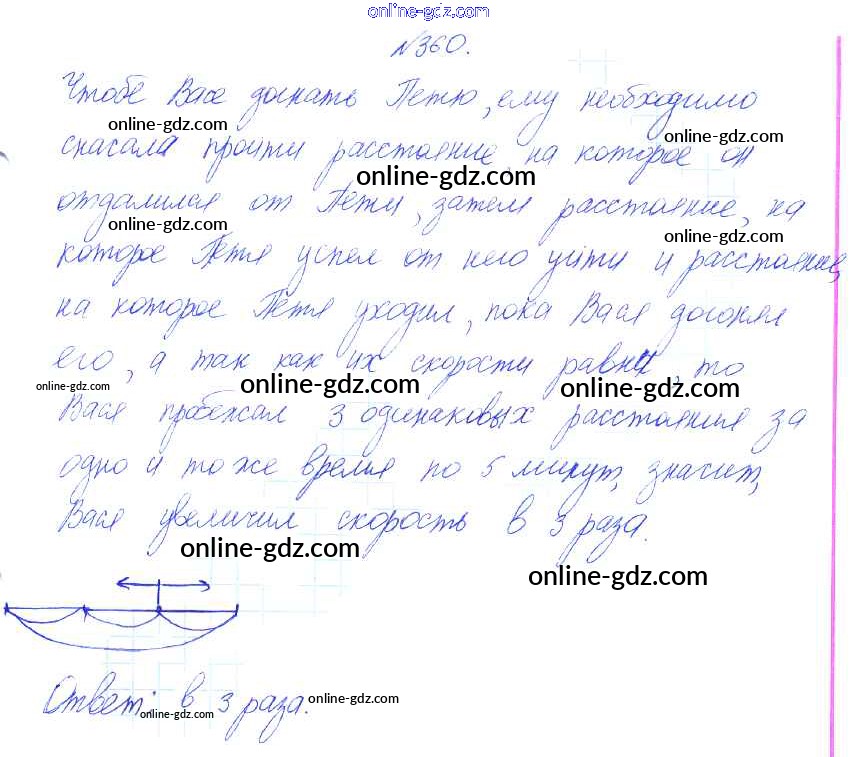 online-gdz.com
№360.
Чтобе Васе догнать Петю, ему необходимо
online-gdz.com
online-gdz.com
снасала пройти расстояние, на которое он
online-gdz.com
отдалился от Пети, затем расстояние, на
online-gdz.com
online-gdz.com
которое Петя успел от него уйти и расстояние,
на которое Петя уходил, пока Вася догонял
его, а так как их скорости равны, то
online-gdz.com
online-gdz.com
online-gdz.com
Вася пробежал 3 одинаковых расстояния за
одно и то же время по 5 минут, значит,
Вася увеличил скорость в 3 раза.
online-gdz.com
online-gdz.com
Ответ: в 3 раза.
online-gdz.com
online-gdz.com